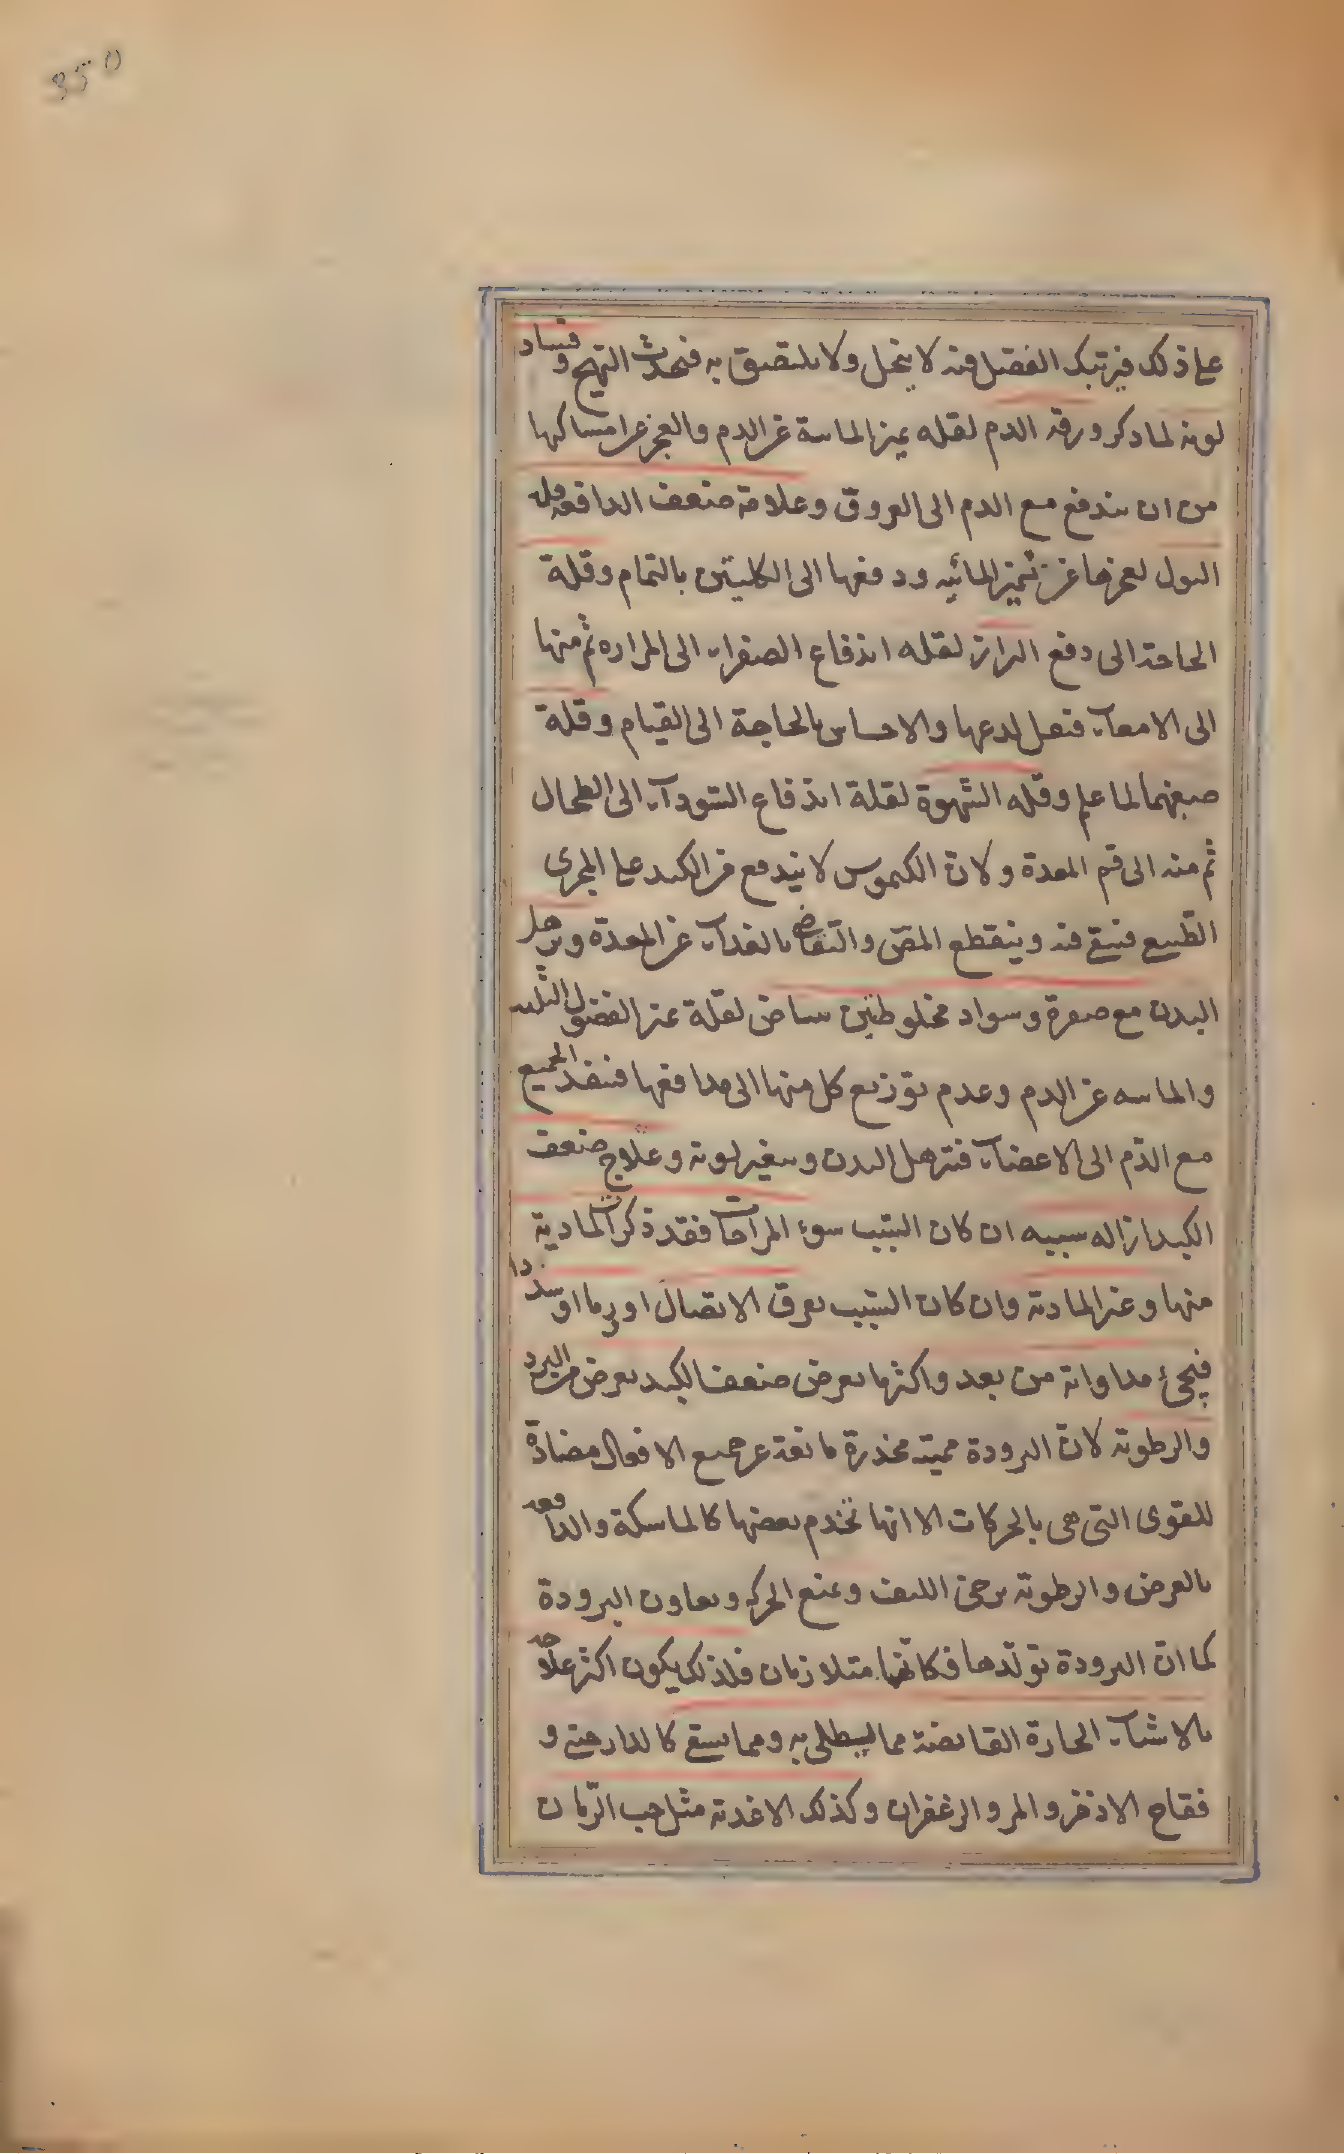 350
على ذلك فيرتبك الفضل فيه لا ينحل ولا يلتصق به فيحدث التهيج وفساد
لونه لما ذكر ورقة الدم لقلة تميز المائية عن الدم والعجز عن امساكها
من ان يندفع مع الدم الى العروق وعلامة ضعف الدافعة قلة
البول لعجزها عن تميز المائية ودفعها الى الكليتين بالتمام وقلة
الحاجة الى دفع البراز لقلة اندفاع الصفراء الى المرارة ثم منها
الى الامعاء فيقل لدعها والاحساس بالحاجة الى القيام وقلة
صبغهما لما علم وقلة الشهوة لقلة اندفاع السوداء الى الطحال
ثم منه الى فم المعدة ولان الكيموس لا يندفع من الكبد على المجرى
الطبيعي فيبقى فيه وينقطع المص والتقاضى بالغداء عن المعدة وترهل
البدن مع صفرة وسواد مخلوطين ببياض لقلة تميز الفضول الثلثة
والمائية عن الدم وعدم توزيع كل منها الى مدافعها فينفذ الجميع
مع الدم الى الاعضاء فترهل البدن ويتغير لونه وعلاج ضعف
الكبد ازالة سببه ان كان السبب سوء المزاجات فقد ذكرت المادية
منها وغير المادية وان كان السبب تفرق الاتصال او ورما او سددا
فيجئ مداواته من بعد واكثر ما يعرض ضعف الكبد يعرض من البرد
والرطوبة لان البرودة مميتة مخدرة مانعة عن جميع الافعال مضادة
للقوى التي هي بالحركات الا انها تخدم بعضها كالماسكة والدافعة
بالعرض والرطوبة يرخى الليف ويمنع الحركة ويعاون البرودة
كما ان البرودة تولدها فكانهما متلازمان فلذلك يكون اكثر علاجه
بالاشياء الحارة القابضة مما يطلى به ومما يسقى كالدارصينى و
فقاح الاذخر والمر والزعفران وكذلك الاغدية مثل حب الرمان